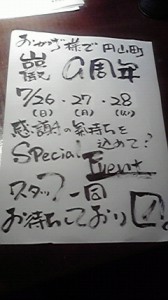 おかげ様で 円山町
巌 9周年
7/26・27・28
(日)(月)(火)
感謝の氣持ちを
込めて?
SPecial
Event
スタッフ一同
お待ちしており〼